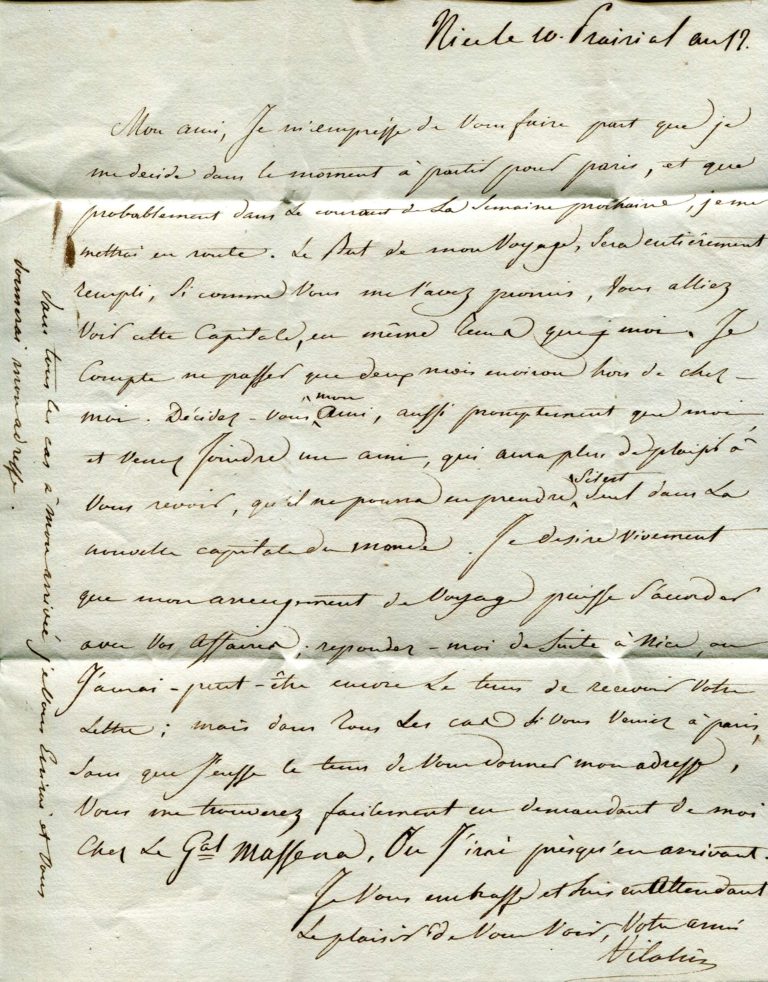 Nice le 10. Prairial an 12.
Mon ami, Je m'empresse de Vous faire part que je
me decide dans le moment à partir pour paris, et que
probablement dans Le courant de La Semaine prochaine, je me
mettrai en route. Le But de mon Voyage, Sera entièrement
rempli, Si comme Vous me l'avez promis, Vous alliez
Voir cette Capitale, en même tems que moi. Je
Compte ne passer que deux mois environ hors de chez-
moi. Décidez-Vous mon ami, aussi promptement que moi
et Venez Joindre un ami, qui aura plus de plaisir à
Vous revoir, qu'il ne pourra en prendre, S'il est Seul dans La
nouvelle capitale du monde. Je desire vivement
que mon arrengement de Voyage puisse S'accorder
avec Vos Affaires; repondez-moi de Suite à Nice, ou
J'aurai-peut-être encore Le tems de recevoir Votre
Lettre; mais dans Tous Les cas Si Vous Veniez à paris,
Sans que J'eusse le tems de Vous donner mon adresse,
Vous me trouverez facilement en demandant de moi
Chez Le Gal Massena, Ou J'irai presqu'en arrivant.
Je Vous embrasse et Suis en Attendant
Le plaisir de Vous Voir, Votre ami
dans tous les cas à mon arrivée je Vous Ecrirai et Vous
donnerai mon adresse.